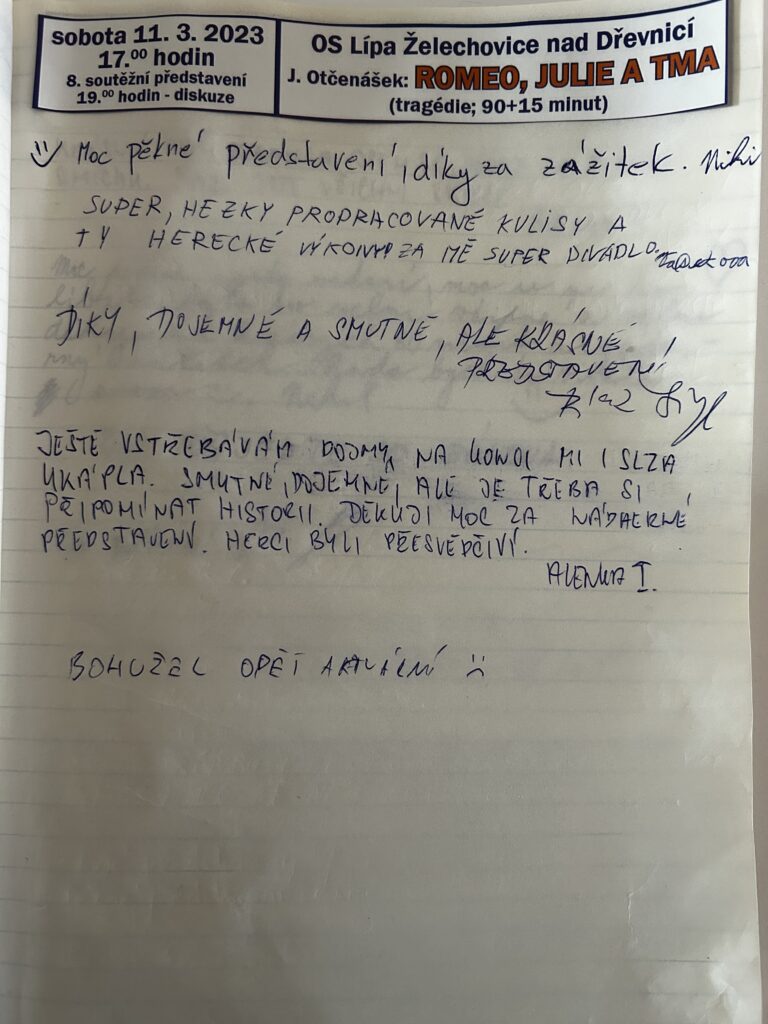 sobota 11. 3. 2023
17.00 hodin
8. soutěžní představení
19.00 hodin - diskuze
OS Lípa Želechovice nad Dřevnicí
J. Otčenášek: ROMEO, JULIE A TMA
(tragédie; 90+15 minut)
Moc pěkné představení, díky za zážitek. Niki
SUPER, HEZKY PROPRACOVANÉ KULISY A
TY HERECKÉ VÝKONY ZA MĚ SUPER DIVADLO.
DÍKY, DOJEMNÉ A SMUTNÉ, ALE KRÁSNÉ
PŘEDSTAVENÍ
JEŠTĚ VSTŘEBÁVÁM DOJMY, NA KONCI MI I SLZA
UKÁPLA. SMUTNÉ, DOJEMNÉ, ALE JE TŘEBA SI
PŘIPOMÍNAT HISTORII. DĚKUJI MOC ZA NÁDHERNÉ
PŘEDSTAVENÍ. HERCI BYLI PŘESVĚDČIVÍ.
ALENKA I.
BOHUŽEL OPĚT AKTUÁLNÍ :(